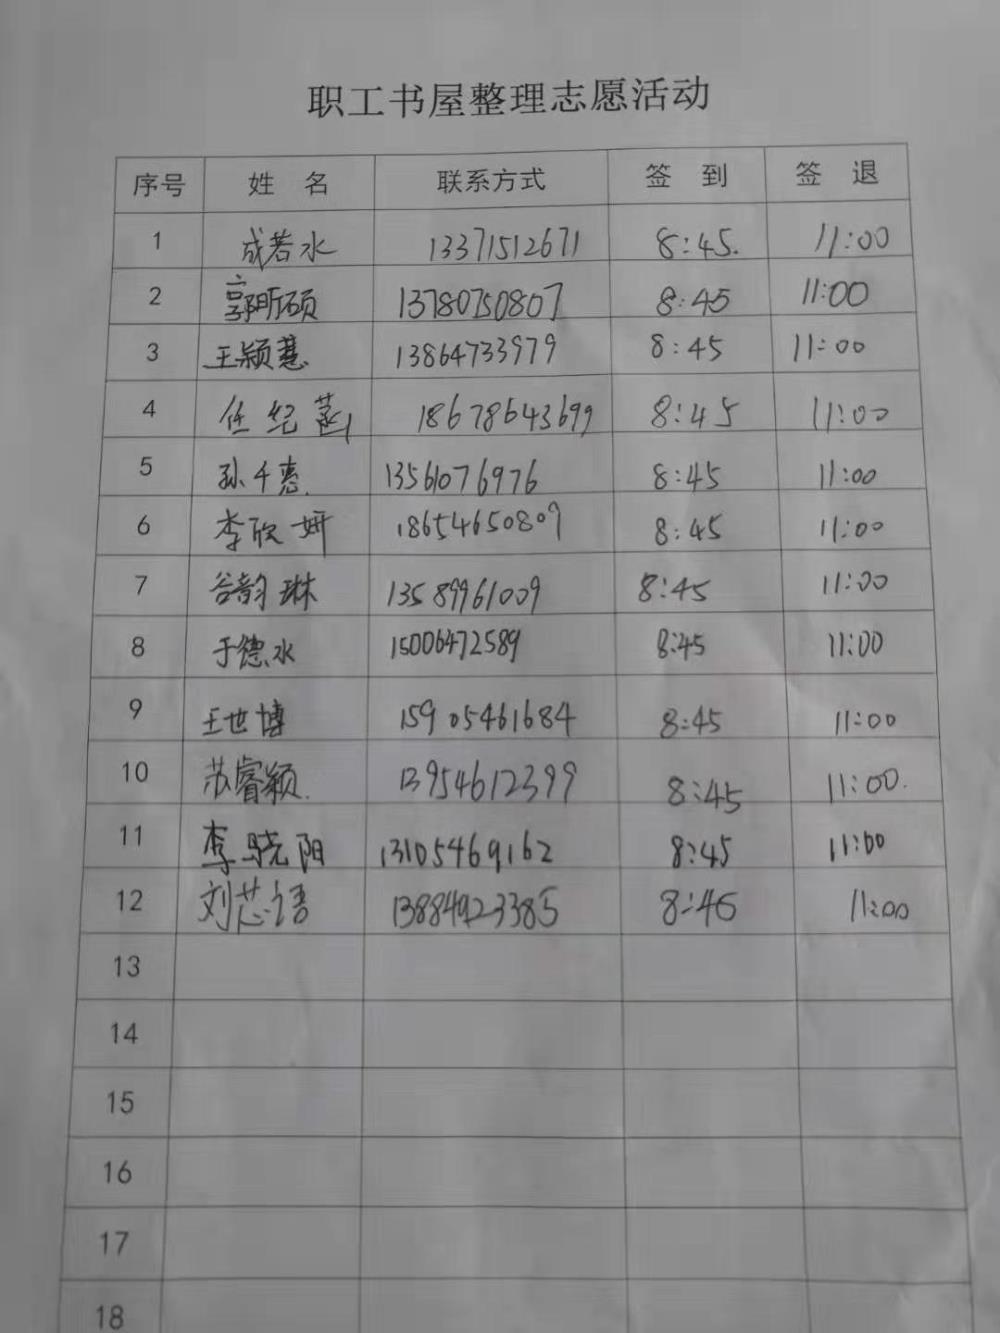 职工书屋整理志愿活动
序号 姓 名 联系方式 签 到 签 退
1 成若水 13371512671 8:45. 11:00
2 郭昕硕 13780750807 8:45 11:00
3 王颖慧 13864733979 8:45 11:00
4 任纪菡 18678643699 8:45 11:00
5 孙千惠 13561076976 8:45 11:00
6 李欣妍 18654650809 8:45 11:00
7 谷韵琳 13589961009 8:45 11:00
8 于德水 15006472589 8:45 11:00
9 王世博 15905461684 8:45 11:00
10 苏睿颖 13954612399 8:45 11:00.
11 李骁阳 13105469162 8:45 11:00
12 刘芯语 13884923385 8:46 11:00
13
14
15
16
17
18